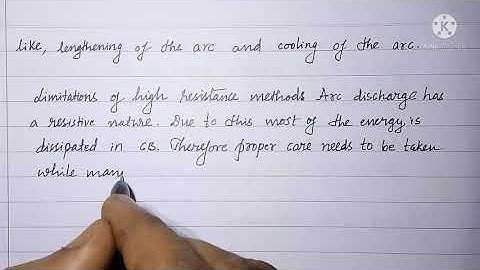 like, lengthening of the arc and cooling of the arc.
Limitations of high resistance methods Arc discharge has
a resistive nature. Due to this most of the energy is
dissipated in CB. Therefore proper care needs to be taken
while many